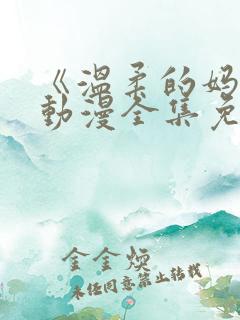 《温柔的妈
动漫全集免
金金焕
未经同意禁止转载